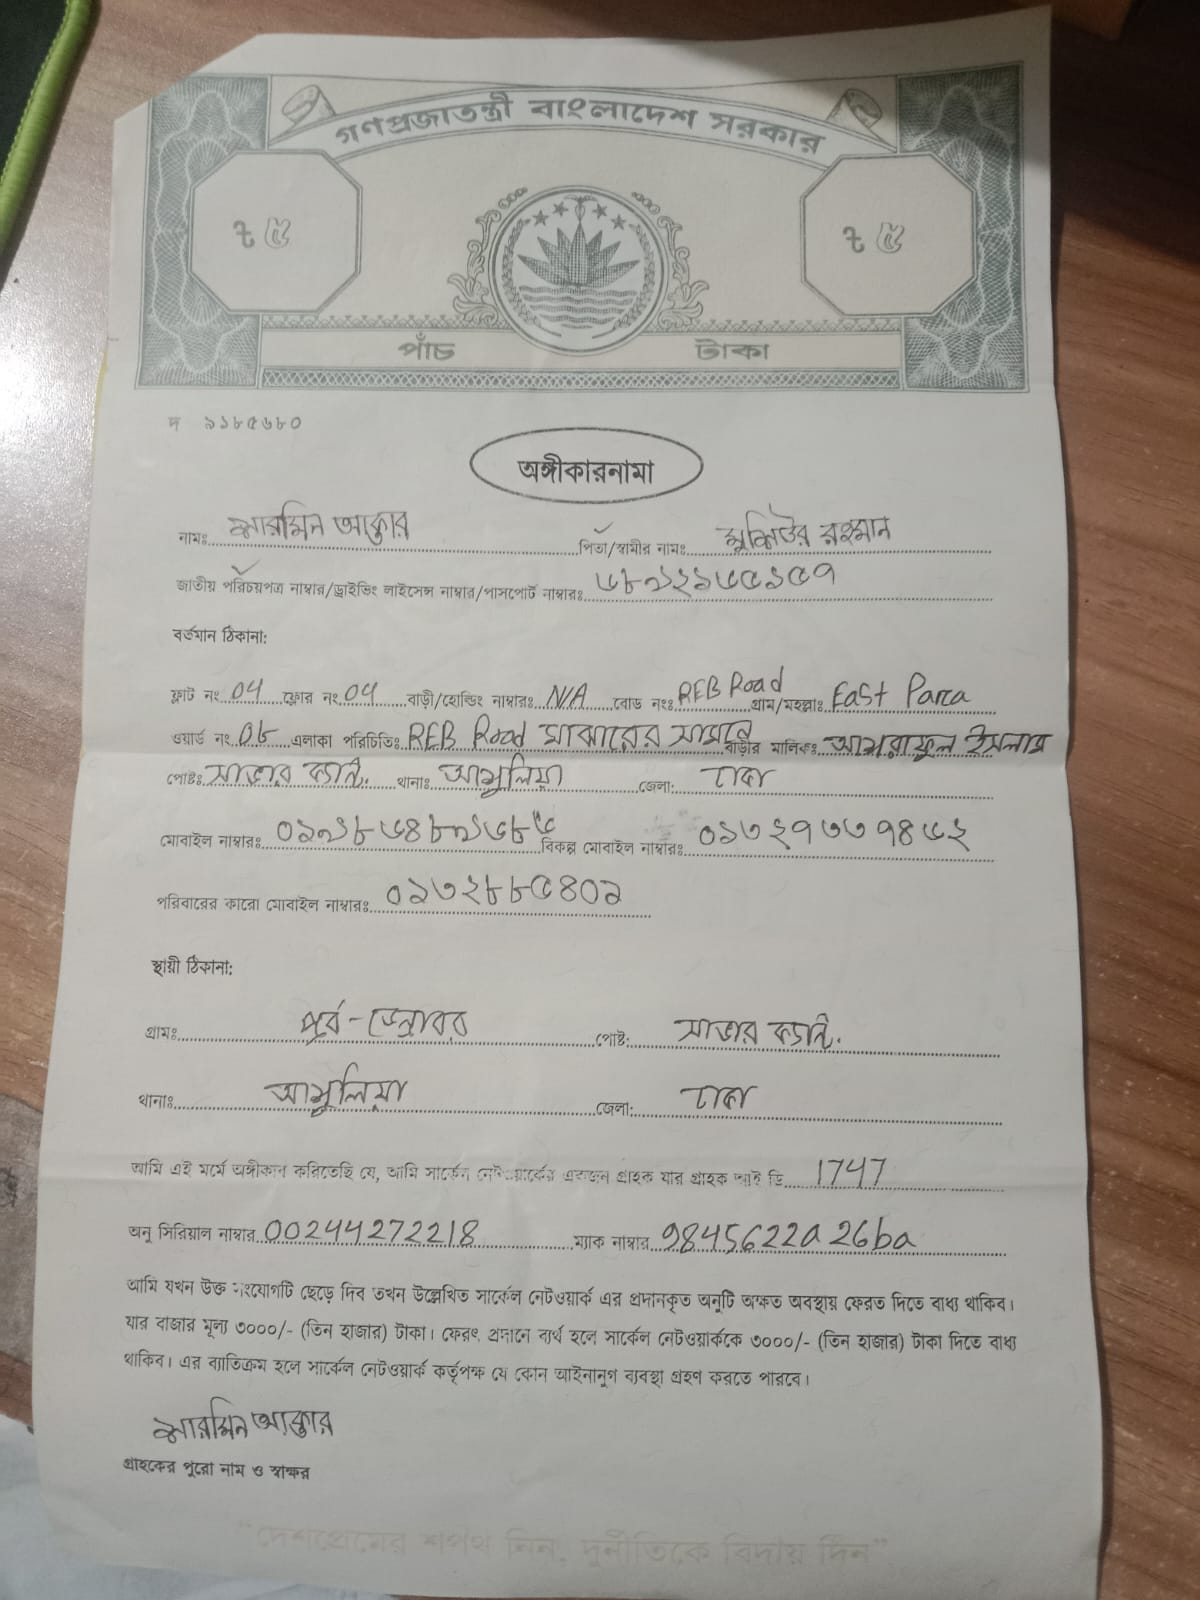 গণপ্রজাতন্ত্রী বাংলাদেশ সরকার
৳ ৫ ৳ ৫
পাঁচ টাকা
দ ৯১৮৫৬৮০
অঙ্গীকারনামা
নামঃ শারমিন আক্তার পিতা/স্বামীর নামঃ মুশিউর রহমান
জাতীয় পরিচয়পত্র নাম্বার/ড্রাইভিং লাইসেন্স নাম্বার/পাসপোর্ট নাম্বারঃ
বর্তমান ঠিকানা:
ফ্লাট নং 04 ফ্লোর নং 04 বাড়ী/হোল্ডিং নাম্বারঃ N/A রোড নংঃ REB Road গ্রাম/মহল্লাঃ East Para
ওয়ার্ড নং 06 এলাকা পরিচিতিঃ REB Road মাঝারের সামনে বাড়ীর মালিকঃ আশরাফুল ইসলাম
পোষ্টঃ সাভার ক্যান্ট. থানাঃ আশুলিয়া জেলা: ঢাকা
মোবাইল নাম্বারঃ বিকল্প মোবাইল নাম্বারঃ ০১৭২৭৭৭৭৪৬২
পরিবারের কারো মোবাইল নাম্বারঃ
স্থায়ী ঠিকানা:
গ্রামঃ পূর্ব - ডেন্ডাবর পোষ্ট: সাভার ক্যান্ট.
থানাঃ আশুলিয়া জেলা: ঢাকা
আমি এই মর্মে অঙ্গীকার করিতেছি যে, আমি সার্কেল নেটওয়ার্কের একজন গ্রাহক যার গ্রাহক আই ডি 1747
অনু সিরিয়াল নাম্বার 00244272218 ম্যাক নাম্বার 9845622a26ba
আমি যখন উক্ত সংযোগটি ছেড়ে দিব তখন উল্লেখিত সার্কেল নেটওয়ার্ক এর প্রদানকৃত অনুটি অক্ষত অবস্থায় ফেরত দিতে বাধ্য থাকিব।
যার বাজার মূল্য ৩০০০/- (তিন হাজার) টাকা। ফেরৎ প্রদানে ব্যর্থ হলে সার্কেল নেটওয়ার্ককে ৩০০০/- (তিন হাজার) টাকা দিতে বাধ্য
থাকিব। এর ব্যাতিক্রম হলে সার্কেল নেটওয়ার্ক কর্তৃপক্ষ যে কোন আইনানুগ ব্যবস্থা গ্রহণ করতে পারবে।
শারমিন আক্তার
গ্রাহকের পুরো নাম ও স্বাক্ষর
"দেশপ্রেমের শপথ নিন, দুর্নীতিকে বিদায় দিন"